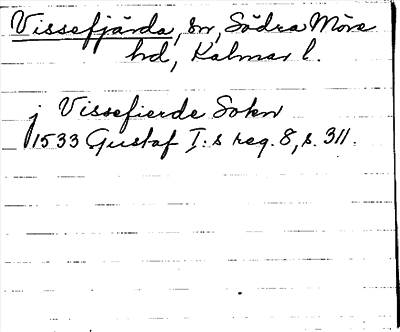 Vissefjärda, sn, Södra Möre
hd, Kalmar l.
j Vissefierde Sokn
1533 Gustaf I:s reg. 8, s. 311.